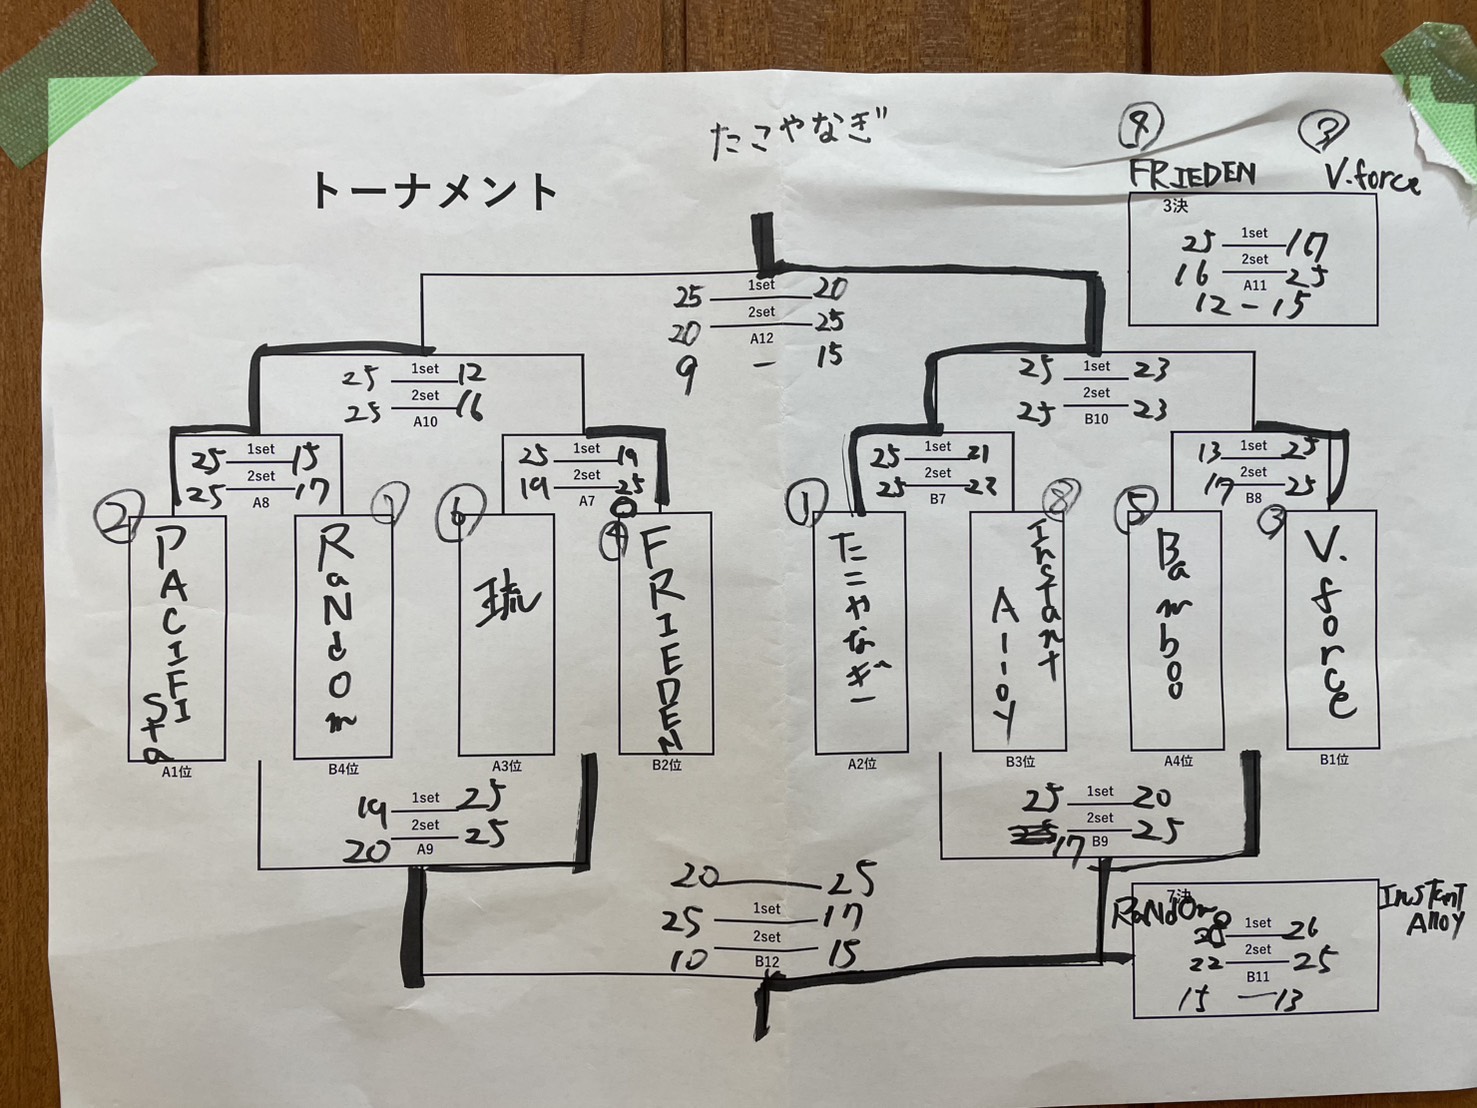 たこやなぎ
④
③
トーナメント
FRIEDEN
V.force
3決
25 1set 17
16 2set 25
A11
12 - 15
25 1set 20
20 2set 25
A12
9 - 15
25 1set 12
25 2set 16
A10
25 1set 23
25 2set 23
B10
25 1set 15
25 2set 17
A8
25 1set 19
19 2set 25
A7
25 1set 21
25 2set 22
B7
13 1set 25
17 2set 25
B8
②
PACIFISta
A1位
⑦
RaNdOm
B4位
⑥
琉
A3位
④
FRIEDEN
B2位
①
たこやなぎー
A2位
⑧
Instant
Alloy
B3位
⑤
Bamboo
A4位
③
V.force
B1位
19 1set 25
20 2set 25
A9
25 1set 20
17 2set 25
B9
20 25
25 1set 17
10 2set 15
B12
7決
RaNdOm
INSTANT
Alloy
28 1set 26
22 2set 25
B11
15 - 13